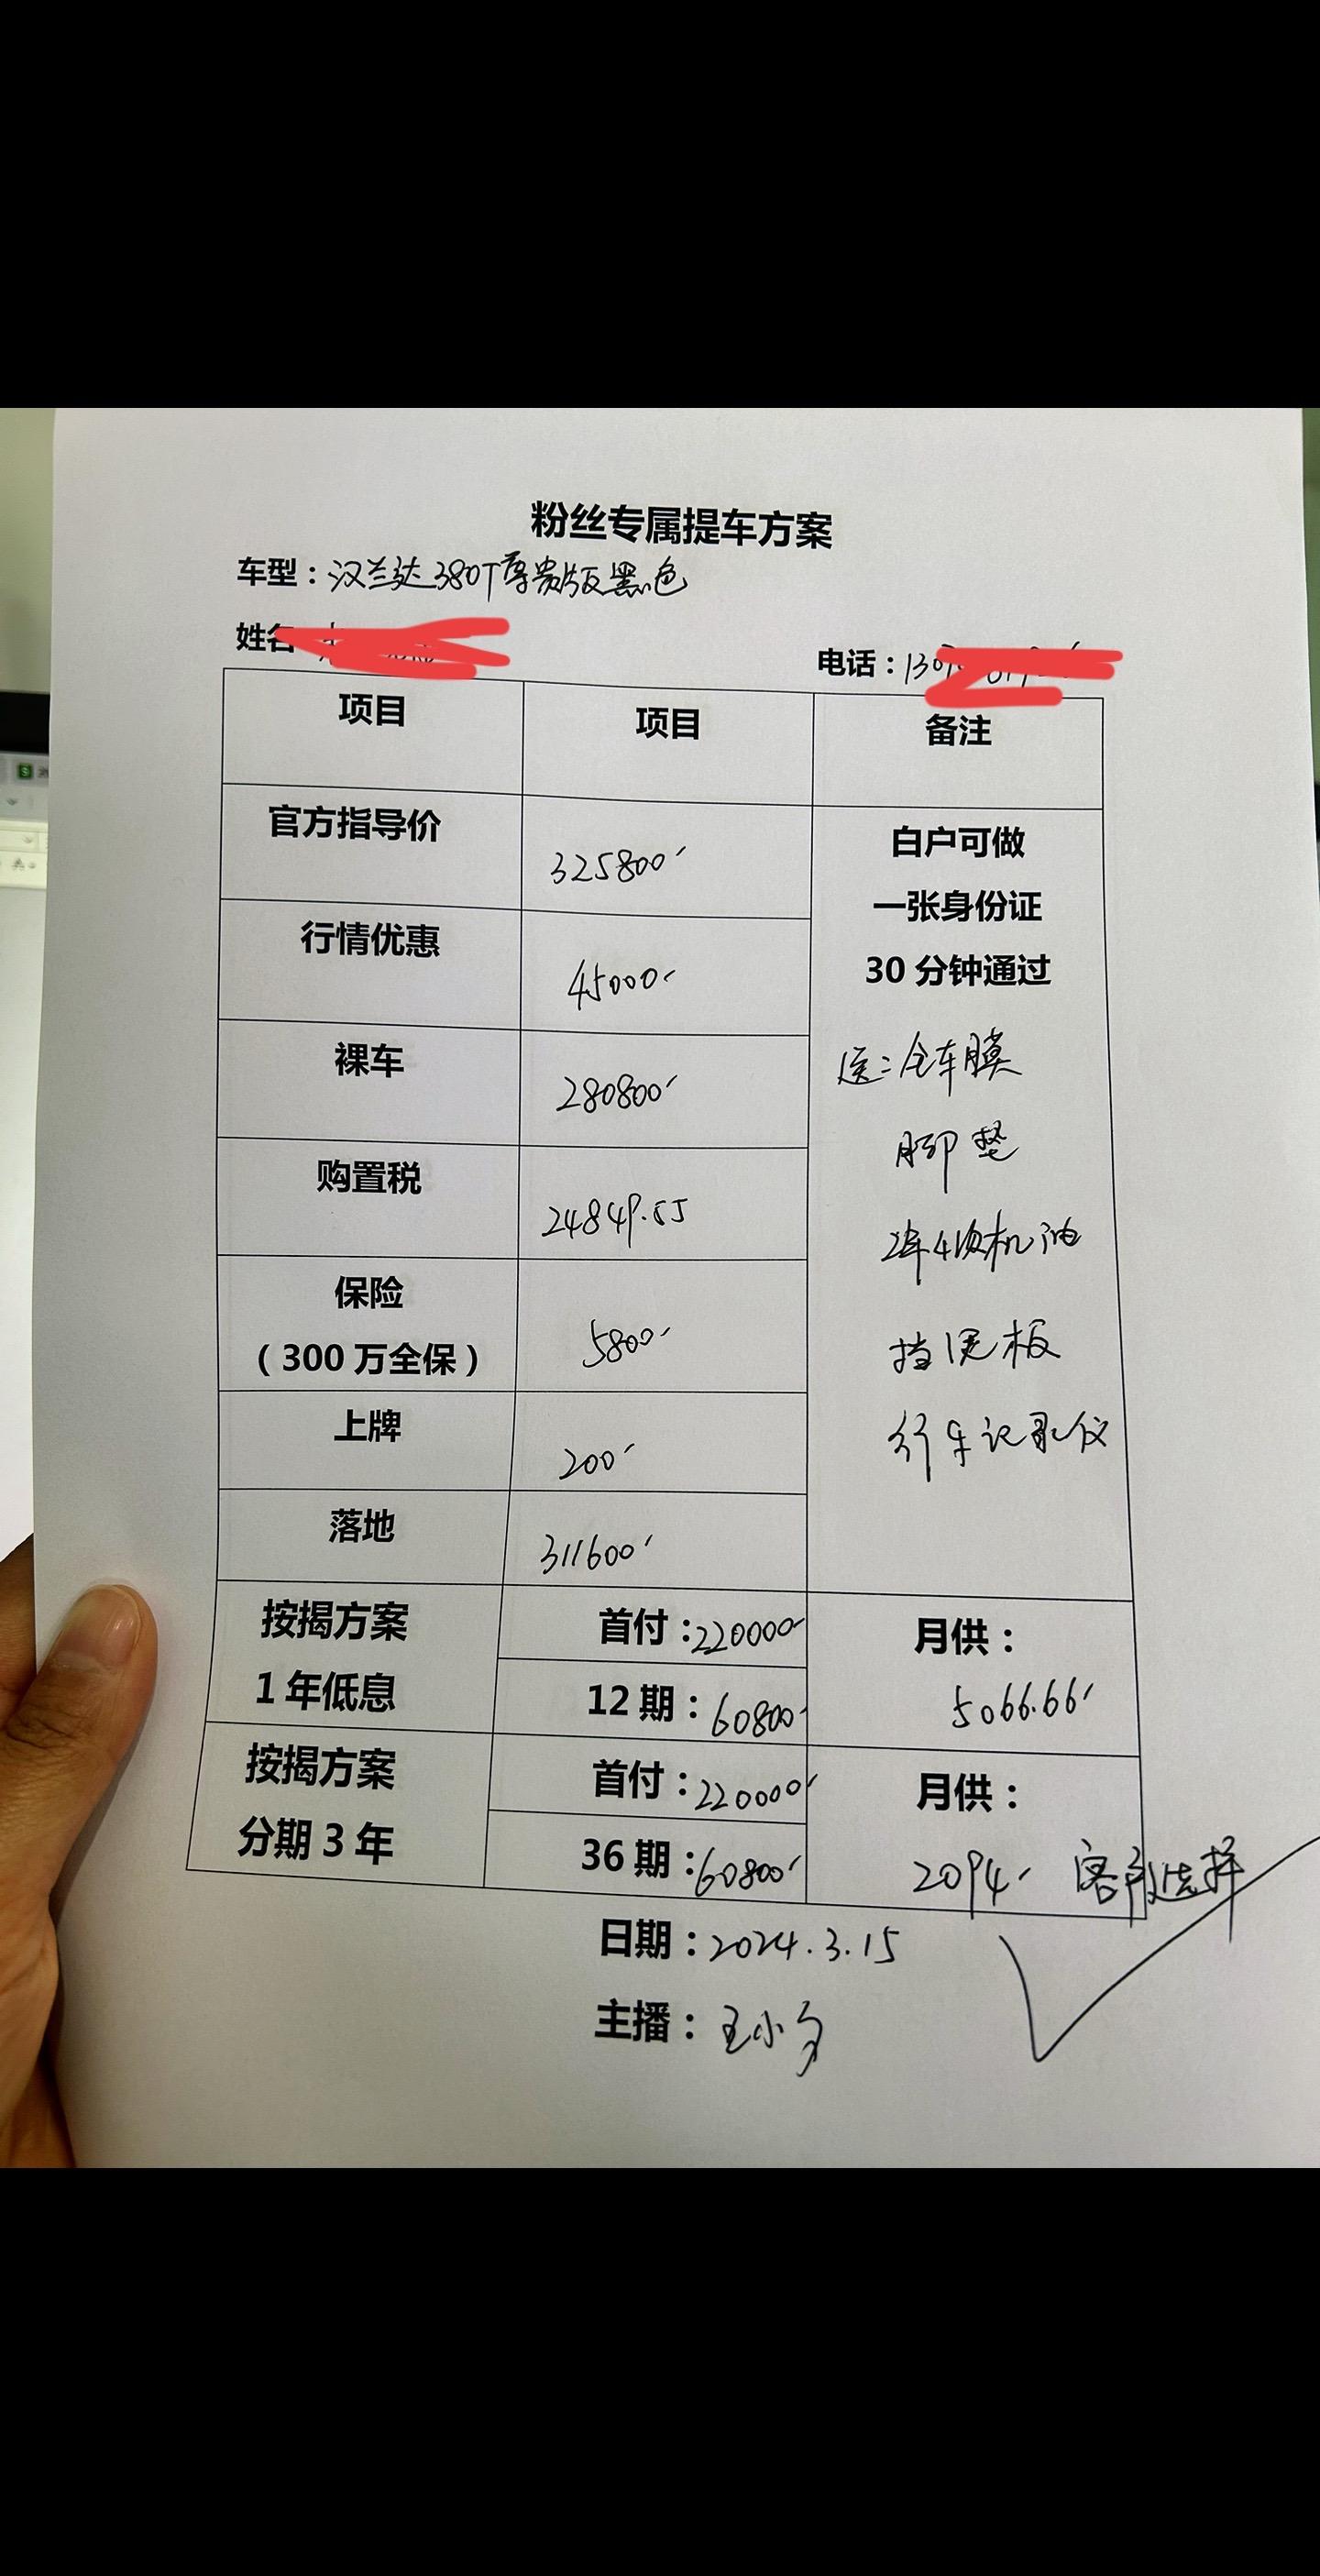 粉丝专属提车方案
车型：汉兰达380T尊贵版黑色
姓名
电话：130
项目 项目 备注
官方指导价 325800
行情优惠 45000
裸车 280800
购置税 24849.55
保险
（300万全保） 5800
上牌 200
落地 311600
白户可做
一张身份证
30分钟通过
送：全车膜
脚垫
2年4次机油
挡泥板
行车记录仪
按揭方案
1年低息
首付：220000
12期：60800
月供：
5066.66
按揭方案
分期3年
首付：220000
36期：60800
月供：
2094 客户选择
日期：2024.3.15
主播：王小